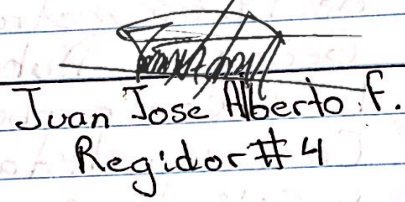 Juan Jose Alberto F.
Regidor #4